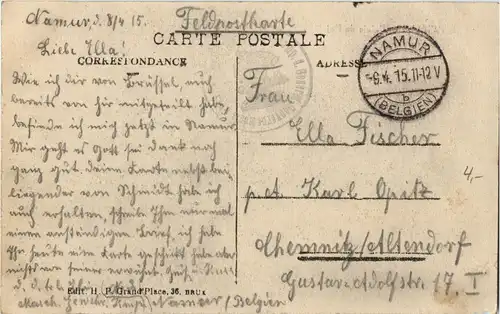 Namur, d. 8/4 15.
Feldpostkarte
CARTE POSTALE
Liebe Ella!
CORRESPONDANCE
ADRESSE
NAMUR
-9.4.15.11-12V
b
(BELGIEN)
Wie ich dir von Brüssel, auch
bereits von hier mitgeteilt habe,
befinde ich mich jetzt in Namur.
Mir geht es Gott sei dank noch
ganz gut, deine Karte nebst bei
liegender von Schmidt habe ich
auch erhalten, schreibe Ihm nur mal
einen anständigen Brief, ich habe
Ihm heute eine Karte geschickt habe aber
nichts von seiner erwähnt.
Namur / Belgien
Frau
Ella Fischer
p. ad. Karl Opitz
Chemnitz/Altendorf
Gustav-Adolfstr. 17. I
4,-
Edit. H. P. Grand'Place, 36, BRUX